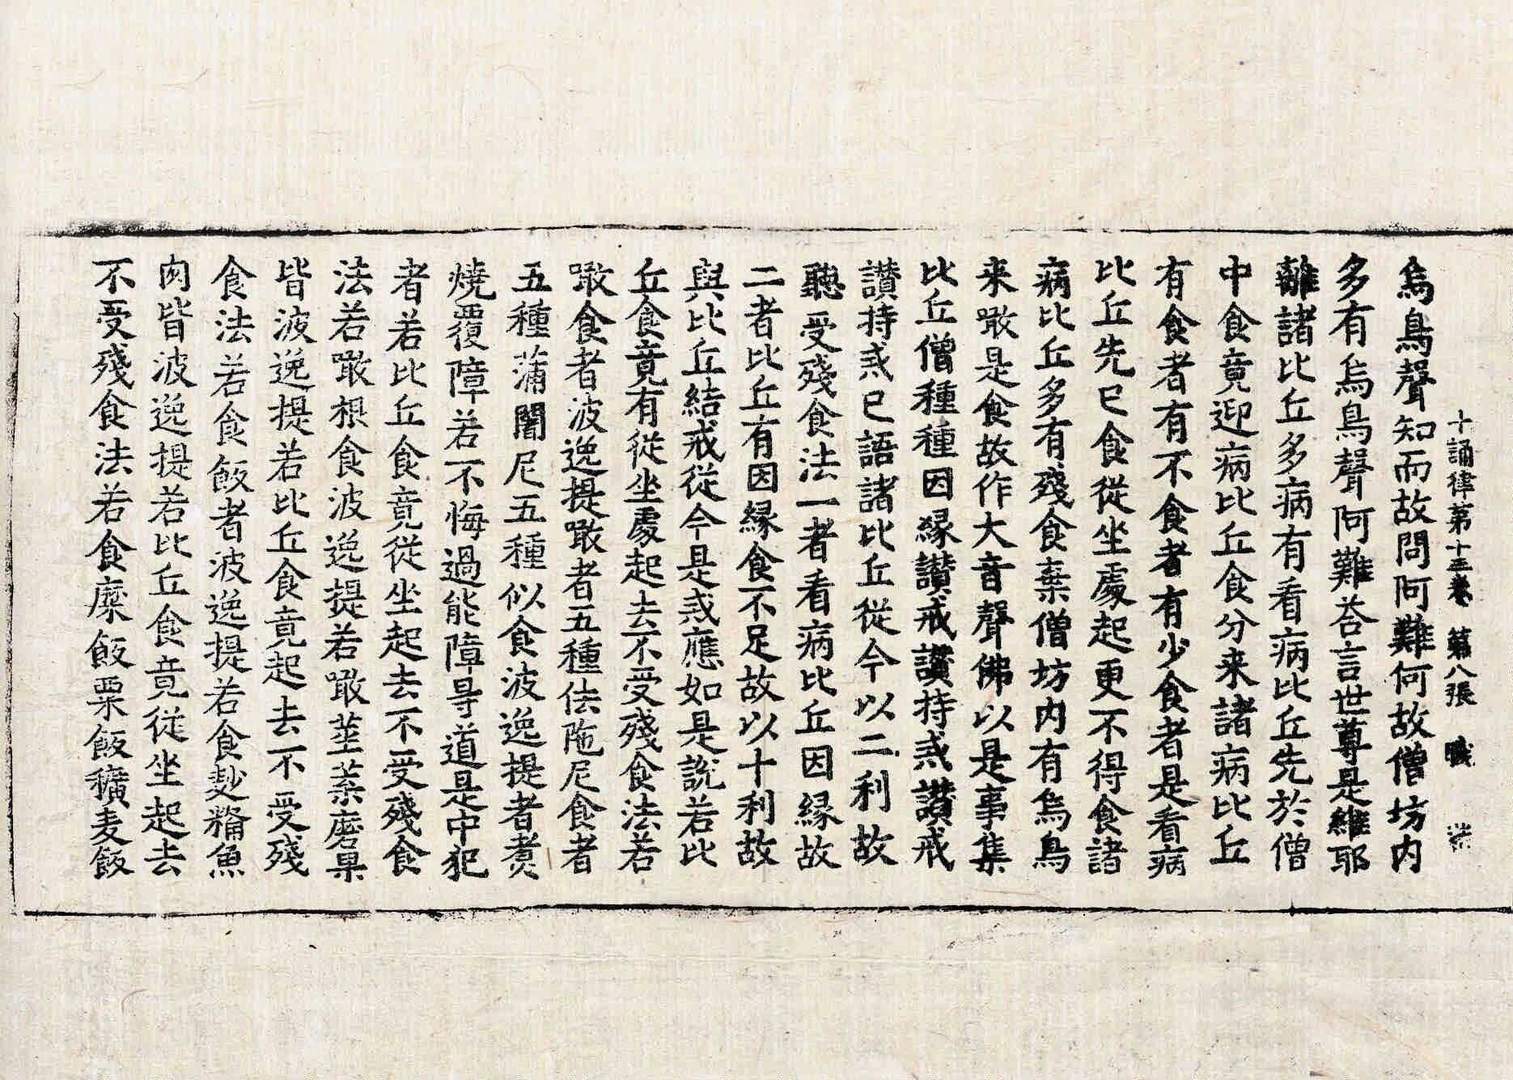 十誦律第十三卷　第八張　職
烏鳥聲知而故問阿難何故僧坊内
多有烏鳥聲阿難荅言世尊是維耶
離諸比丘多病有看病比丘先於僧
中食竟迎病比丘食分来諸病比丘
有食者有不食者有少食者是看病
比丘先已食從坐處起更不得食諸
病比丘多有殘食棄僧坊内有烏鳥
来噉是食故作大音聲佛以是事集
比丘僧種種因緣讃戒讃持戒讃戒
讃持戒已語諸比丘從今以二利故
聽受殘食法一者看病比丘因緣故
二者比丘有因緣食不足故以十利故
與比丘結戒從今是戒應如是說若比
丘食竟有從坐處起去不受殘食法若
噉食者波逸提噉者五種佉陁尼食者
五種蒲闍尼五種似食波逸提者煑
燒覆障若不悔過能障㝵道是中犯
者若比丘食竟從坐起去不受殘食
法若噉根食波逸提若噉莖葉磨果
皆波逸提若比丘食竟起去不受殘
食法若食飯者波逸提若食麨糒魚
肉皆波逸提若比丘食竟從坐起去
不受殘食法若食糜飯粟飯穬麦飯